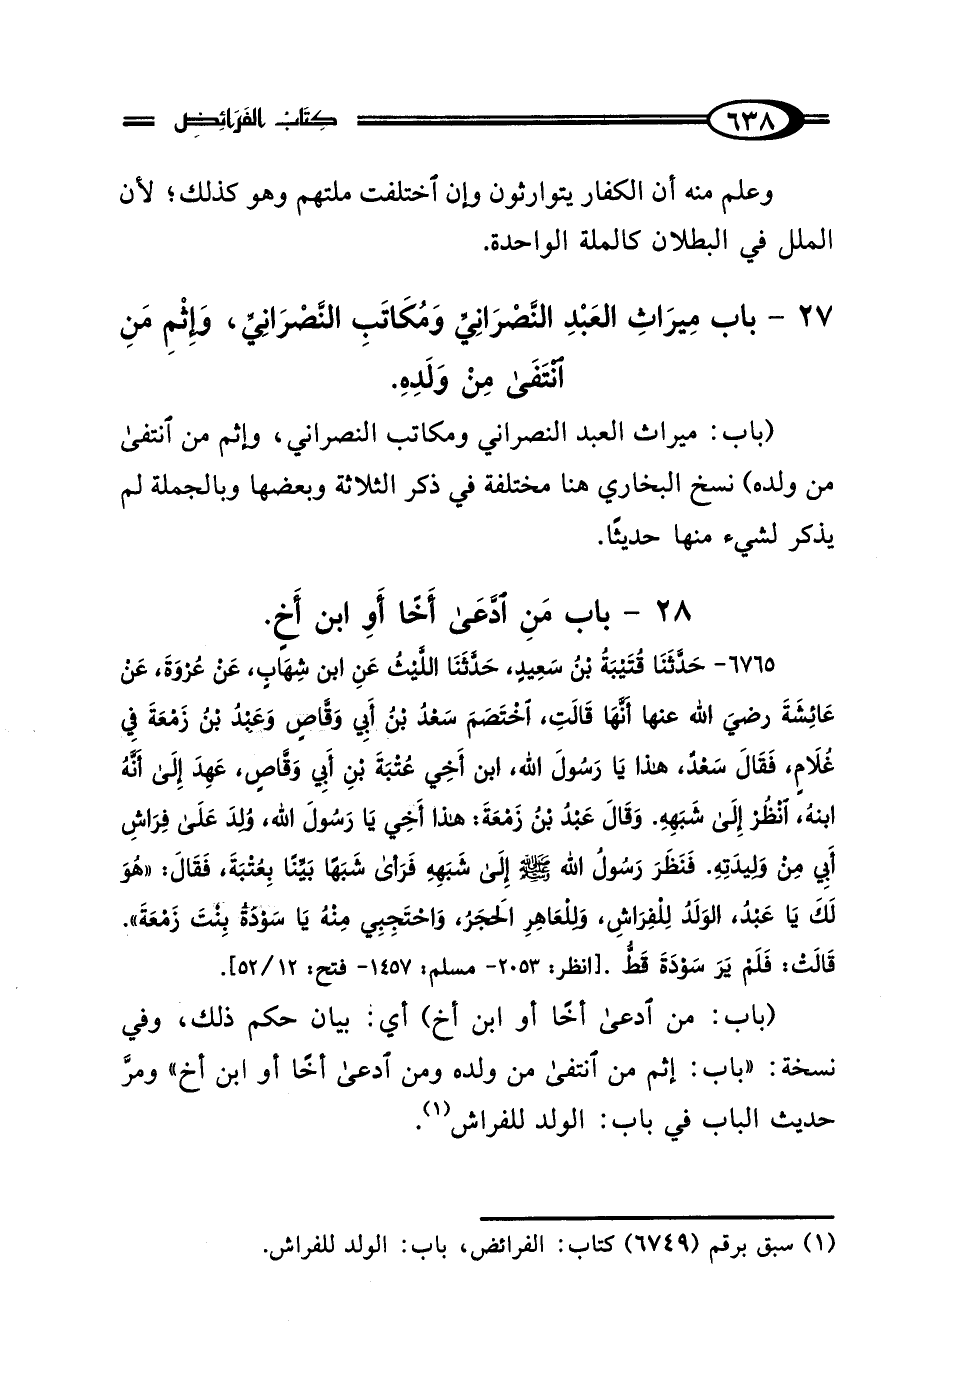 ٦٣٨ كِتَابُ الفَرَائِضِ
وعلم منه أن الكفار يتوارثون وإن ٱختلفت ملتهم وهو كذلك؛ لأن
الملل في البطلان كالملة الواحدة.
٢٧ - باب مِيرَاثِ العَبْدِ النَّصْرَانِيِّ وَمُكَاتَبِ النَّصْرَانِيِّ، وَإِثْمِ مَنِ
ٱنْتَفَىٰ مِنْ وَلَدِهِ.
(باب: ميراث العبد النصراني ومكاتب النصراني، وإثم من ٱنتفىٰ
من ولده) نسخ البخاري هنا مختلفة في ذكر الثلاثة وبعضها وبالجملة لم
يذكر لشيء منها حديثًا.
٢٨ - باب مَنِ ٱدَّعَىٰ أَخًا أَوِ ابن أَخٍ.
٦٧٦٥- حَدَّثَنَا قُتَيْبَةُ بْنُ سَعِيدٍ، حَدَّثَنَا اللَّيْثُ عَنِ ابن شِهَابٍ، عَنْ عُرْوَةَ، عَنْ
عَائِشَةَ رضيَ الله عنها أَنَّهَا قَالَتِ، ٱخْتَصَمَ سَعْدُ بْنُ أَبِي وَقَّاصٍ وَعَبْدُ بْنُ زَمْعَةَ فِي
غُلَامٍ، فَقَالَ سَعْدٌ، هٰذا يَا رَسُولَ الله، ابن أَخِي عُتْبَةَ بْنِ أَبِي وَقَّاصٍ، عَهِدَ إِلَىٰ أَنَّهُ
ابنهُ، ٱنْظُرْ إِلَىٰ شَبَهِهِ. وَقَالَ عَبْدُ بْنُ زَمْعَةَ: هٰذا أَخِي يَا رَسُولَ الله، وُلِدَ عَلَىٰ فِرَاشِ
أَبِي مِنْ وَلِيدَتِهِ. فَنَظَرَ رَسُولُ الله ﷺ إِلَىٰ شَبَهِهِ فَرَأىٰ شَبَهًا بَيِّنًا بِعُتْبَةَ، فَقَالَ: «هُوَ
لَكَ يَا عَبْدُ، الوَلَدُ لِلْفِرَاشِ، وَلِلْعَاهِرِ الَحجَرُ، وَاحْتَجِبِي مِنْهُ يَا سَوْدَةُ بِنْتَ زَمْعَةَ».
قَالَتْ: فَلَمْ يَرَ سَوْدَةَ قَطُّ .[انظر: ٢٠٥٣- مسلم: ١٤٥٧- فتح: ٥٢/١٢].
(باب: من ٱدعىٰ أخًا أو ابن أخ) أي: بيان حكم ذلك، وفي
نسخة: «باب: إثم من ٱنتفىٰ من ولده ومن ٱدعىٰ أخًا أو ابن أخ» ومرَّ
حديث الباب في باب: الولد للفراش(١).
(١) سبق برقم (٦٧٤٩) كتاب: الفرائض، باب: الولد للفراش.